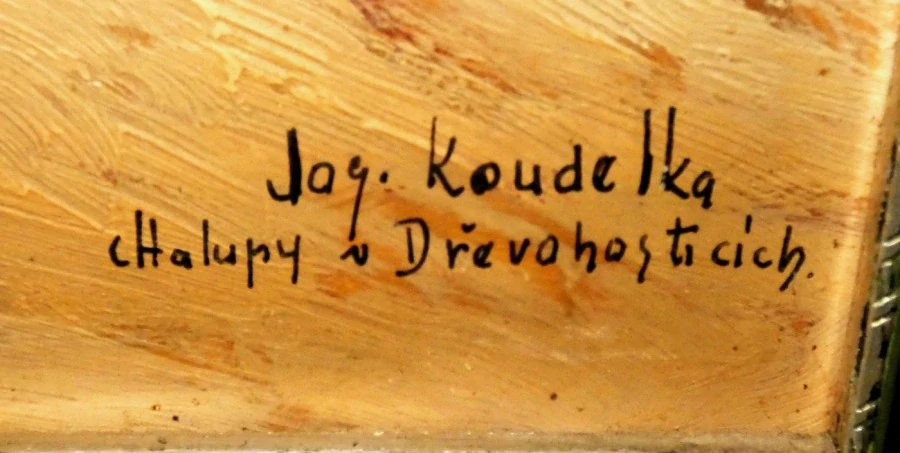 Jos. Koudelka
cHalupy v Dřevohosticích.